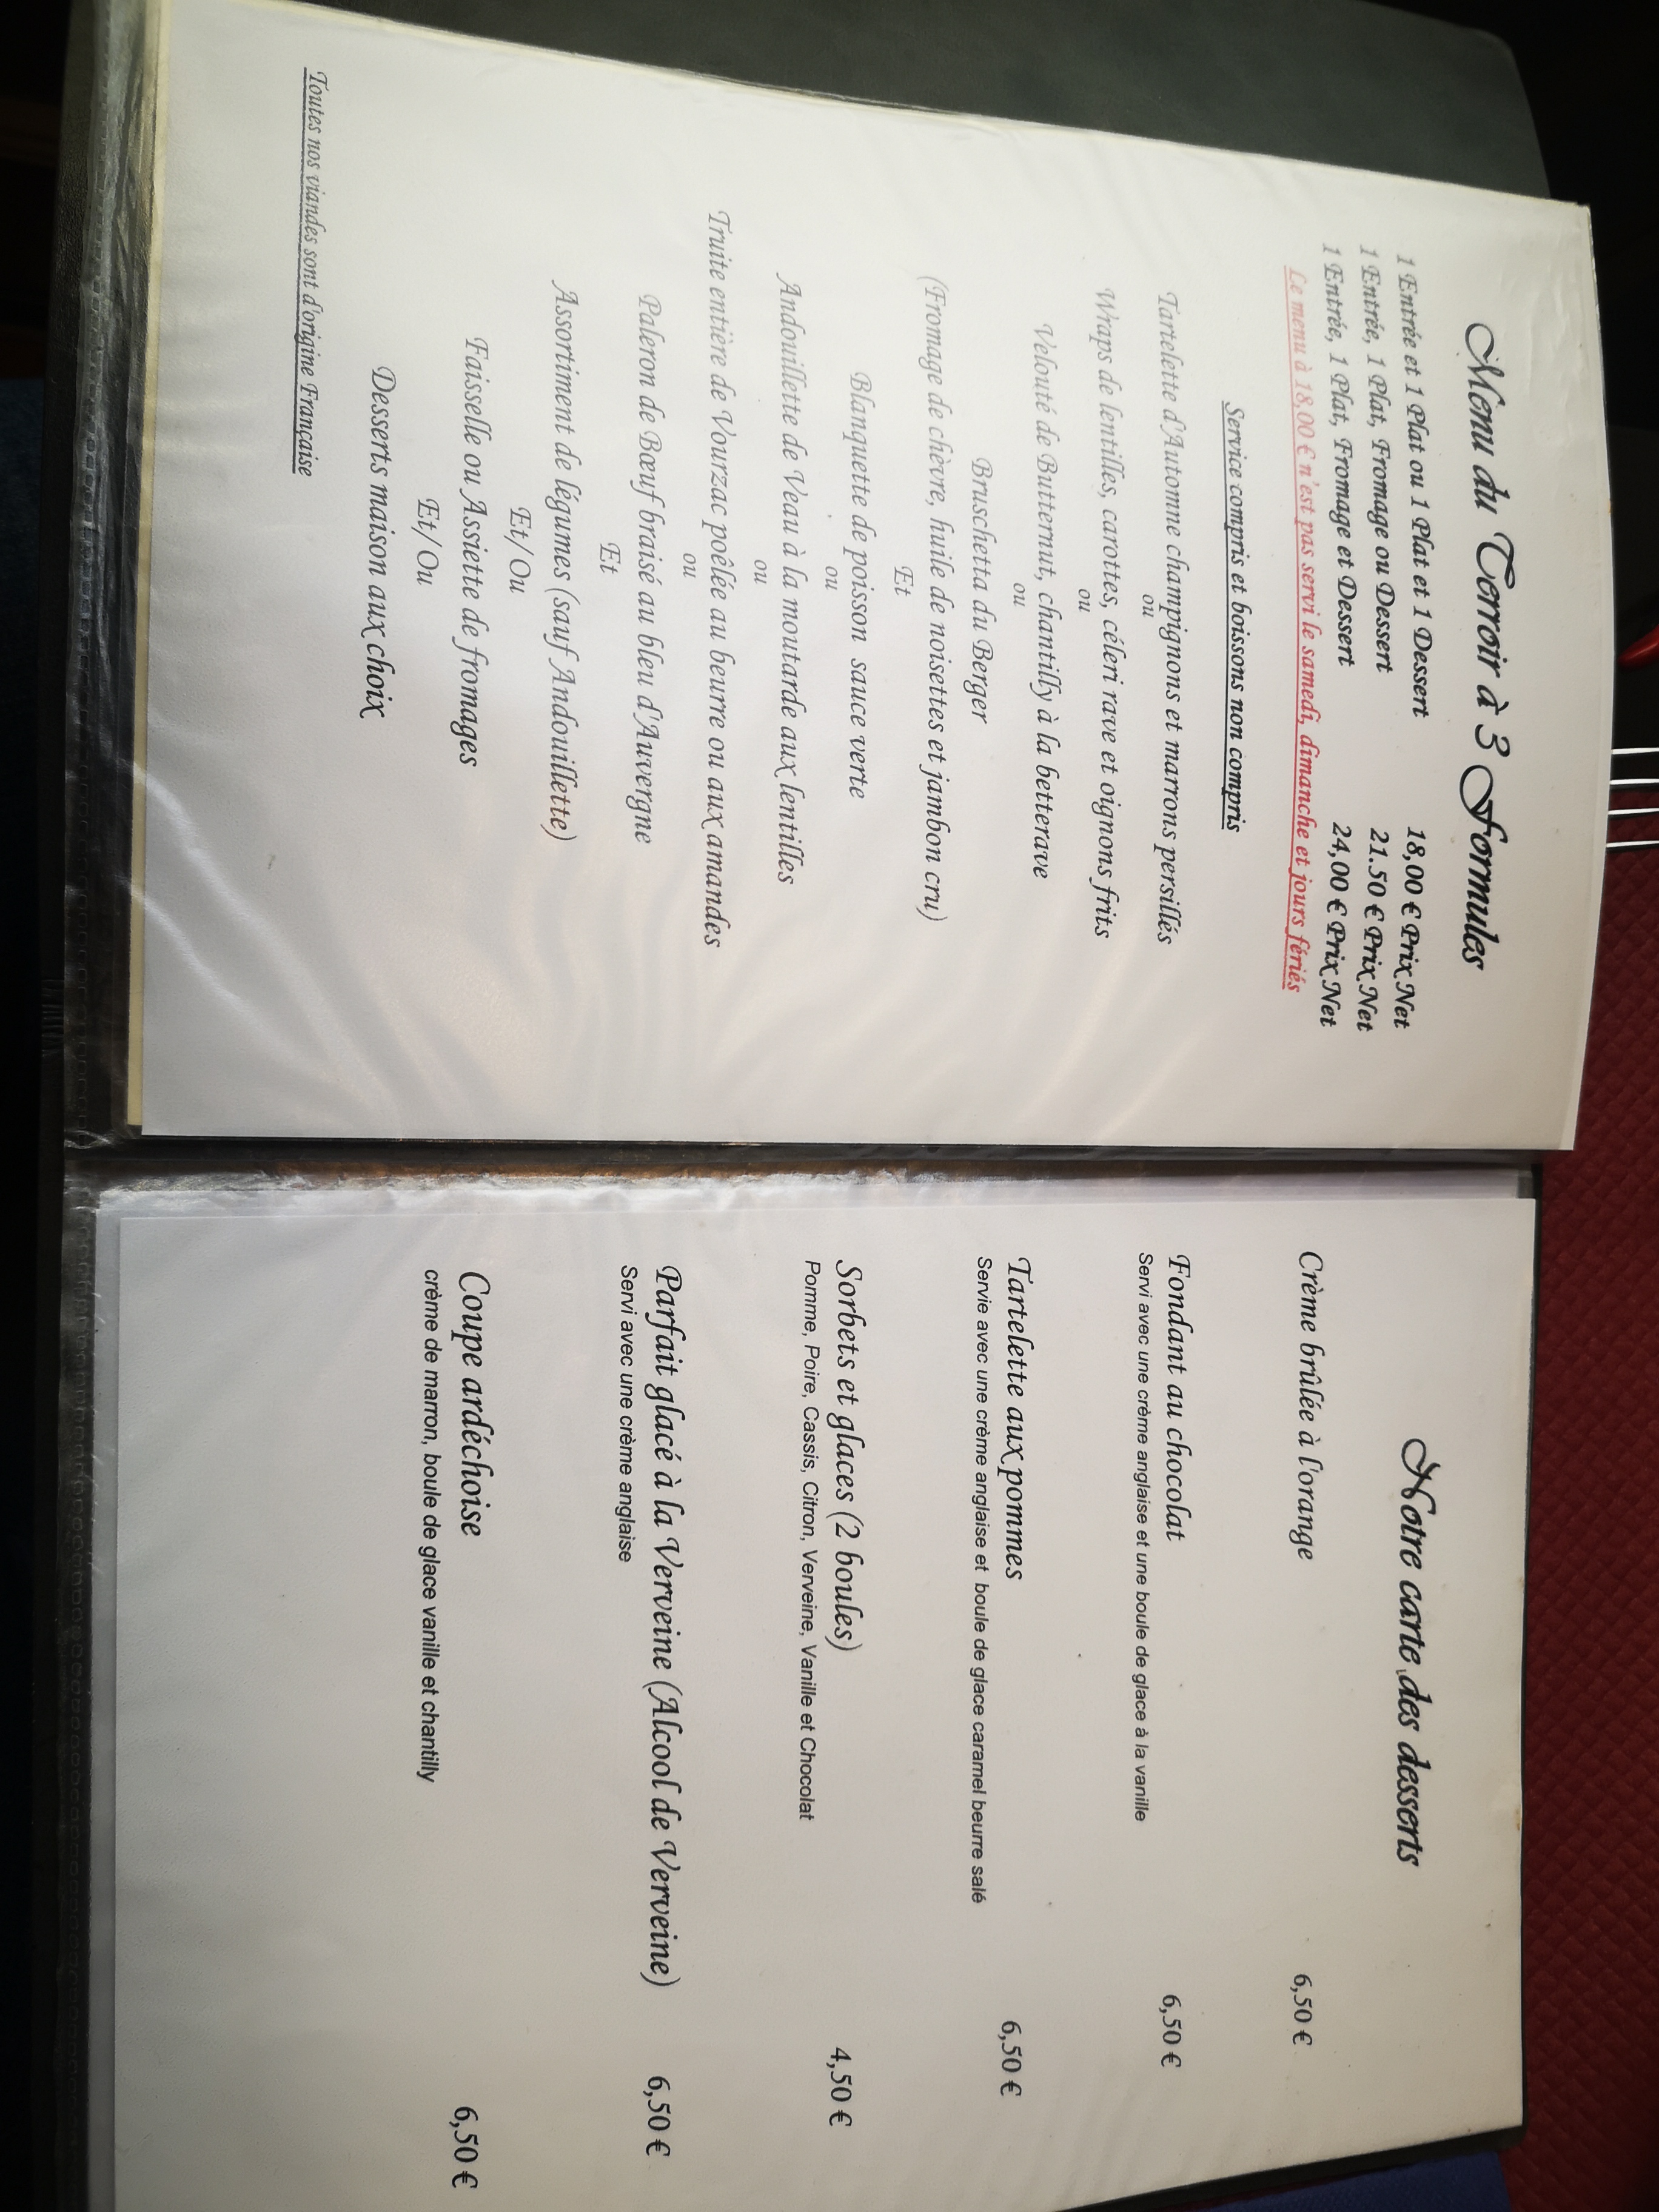 Menu du Terroir à 3 Formules
1 Entrée et 1 Plat ou 1 Plat et 1 Dessert 18,00 € Prix Net
1 Entrée, 1 Plat, Fromage ou Dessert 21.50 € Prix Net
1 Entrée, 1 Plat, Fromage et Dessert 24,00 € Prix Net
Le menu à 18,00 € n'est pas servi le samedi, dimanche et jours fériés
Service compris et boissons non compris
Tartelette d'Automne champignons et marrons persillés
ou
Wraps de lentilles, carottes, céleri rave et oignons frits
ou
Velouté de Butternut, chantilly à la betterave
ou
Bruschetta du Berger
(Fromage de chèvre, huile de noisettes et jambon cru)
Et
Blanquette de poisson sauce verte
ou
Andouillette de Veau à la moutarde aux lentilles
ou
Truite entière de Vourzac poêlée au beurre ou aux amandes
ou
Paleron de Bœuf braisé au bleu d'Auvergne
Et
Assortiment de légumes (sauf Andouillette)
Et/Ou
Faisselle ou Assiette de fromages
Et/Ou
Desserts maison aux choix
Toutes nos viandes sont d'origine Française
Notre carte des desserts
Crème brûlée à l'orange 6,50 €
Fondant au chocolat 6,50 €
Servi avec une crème anglaise et une boule de glace à la vanille
Tartelette aux pommes 6,50 €
Servie avec une crème anglaise et boule de glace caramel beurre salé
Sorbets et glaces (2 boules) 4,50 €
Pomme, Poire, Cassis, Citron, Verveine, Vanille et Chocolat
Parfait glacé à la Verveine (Alcool de Verveine) 6,50 €
Servi avec une crème anglaise
Coupe ardéchoise 6,50 €
crème de marron, boule de glace vanille et chantilly